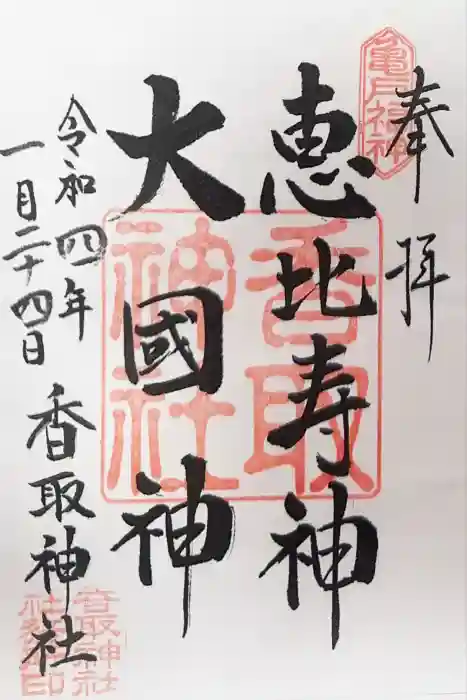 奉拝
亀戸福神
恵比寿神
大國神
香取神社
令和四年
一月二十四日
香取神社
香取神社